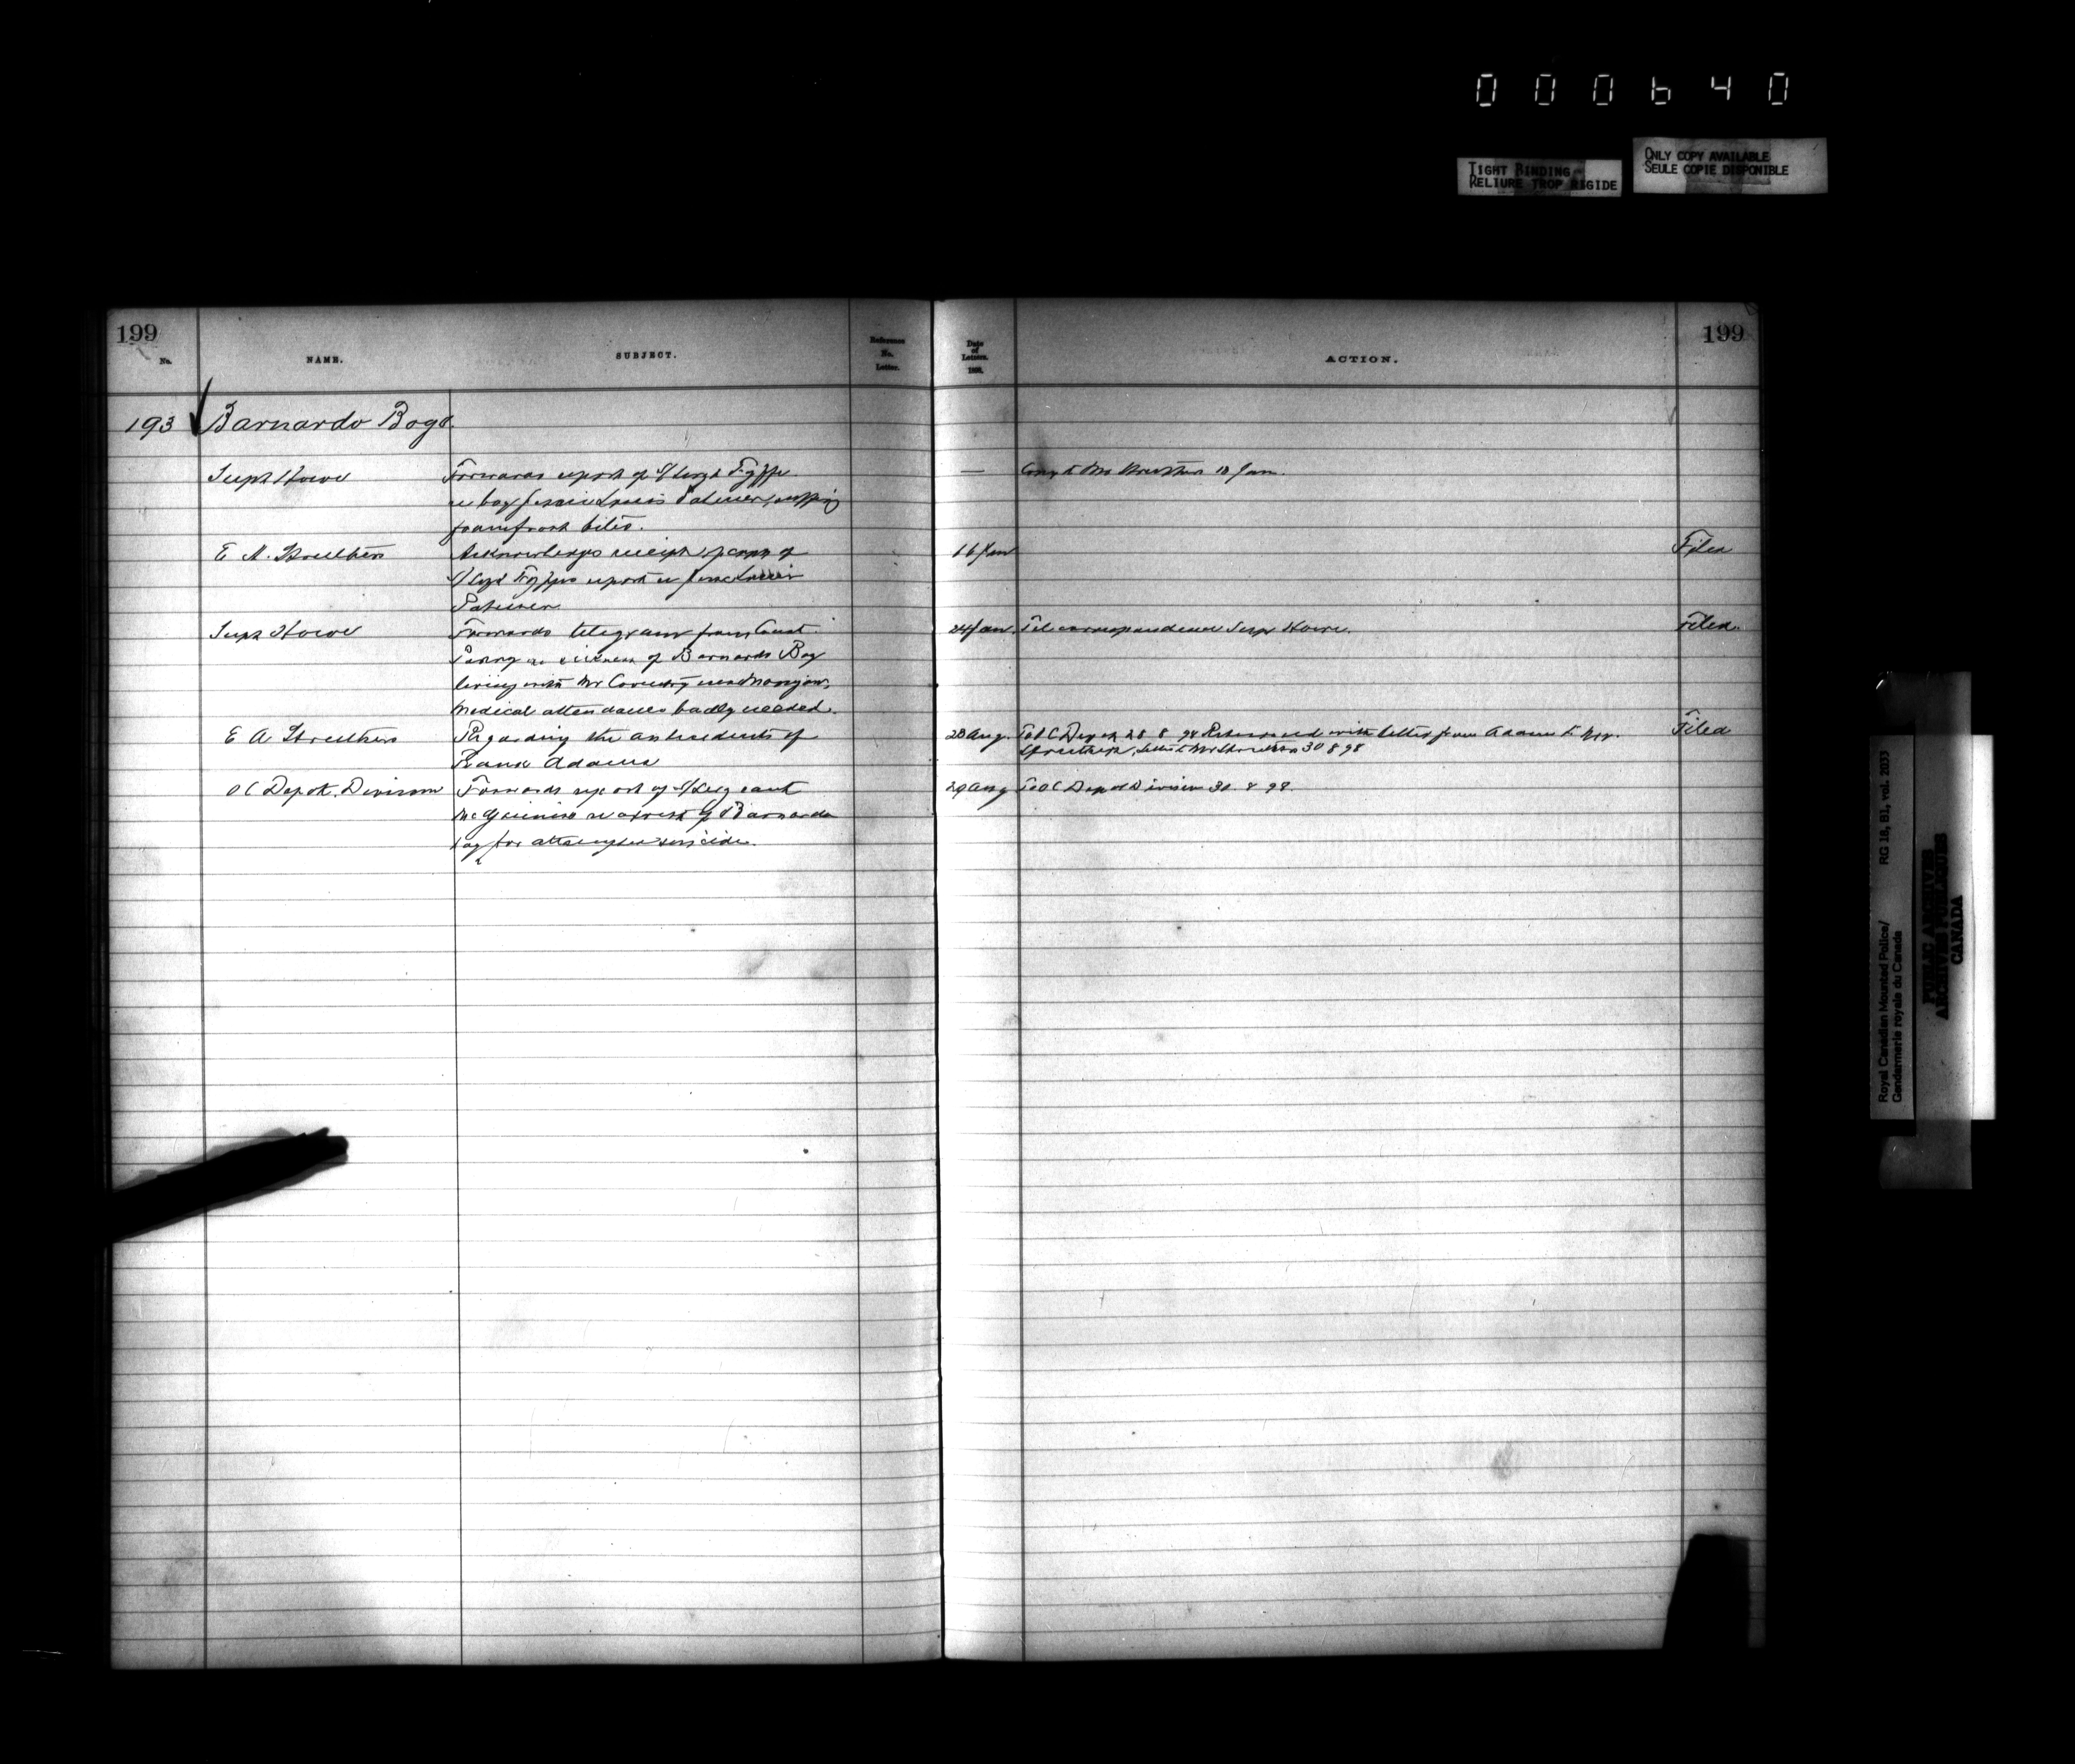 000640
TIGHT BINDING
RELIURE TROP RIGIDE
ONLY COPY AVAILABLE
SEULE COPIE DISPONIBLE
199
199
No.
NAME.
SUBJECT.
Reference
No.
Letter.
Date
of
Letters.
ACTION.
193 Barnardo Boys.
Supt Howe
Forwards report of S/Sergt Fyffe
re boy Palmer
from frost bites.
— Copy to Mr Struthers 10 Jan.
E A. Struthers
Acknowledges receipt of copy of
S/Sergt Fyffes report re
Palmer
16 Jan
Filed
Supt Howe
Forwards telegram from Const.
re sickness of Barnardo Boy
living with Mr Coventry near
Medical attendance badly needed.
24 Jan. Tel correspondence Supt Howe.
Filed.
E A Struthers
Regarding the antecedents of
Frank Adams
28 Aug. To O C Depot 28 8 98 Returned with letter from Adams to Mr.
Struthers, letter to Mr Struthers 30 8 98
Filed
O C Depot. Division
Forwards report of S/Sergeant
McGinnis re arrest of Barnardo
boy for attempted suicide.
29 Aug To O C Depot Division 30. 8 98.
Royal Canadian Mounted Police/
Gendarmerie royale du Canada
RG 18, B1, vol. 2033
PUBLIC ARCHIVES
ARCHIVES PUBLIQUES
CANADA